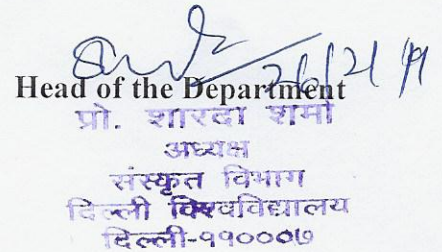 Head of the Department
प्रो. शारदा शर्मा
अध्यक्ष
संस्कृत विभाग
दिल्ली विश्वविद्यालय
दिल्ली-११०००७